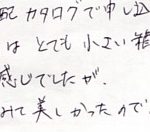 配カタログで申し込
は とても 小エい 箱
感じでしたが、
みて 美しかったので